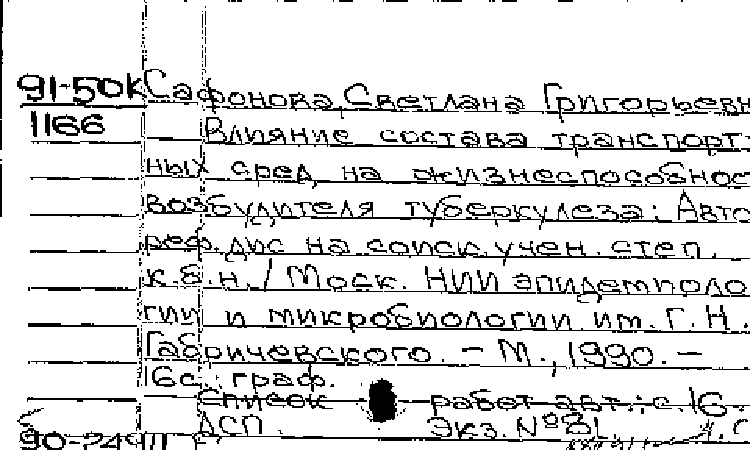 91-50к Сафонова, Светлана Григорьевн
1166 Влияние состава транспорт-
ных сред на жизнеспособнос
возбудителя туберкулеза: Авто
реф. дис на соиск. учен. степ.
к.б.н. / Моск. НИИ эпидемиоло
гии и микробиологии им. Г.Н.
Габричевского. - М., 1990. -
16с.: граф.
Список работ авт.: с. 16.
ДСП Экз. №81